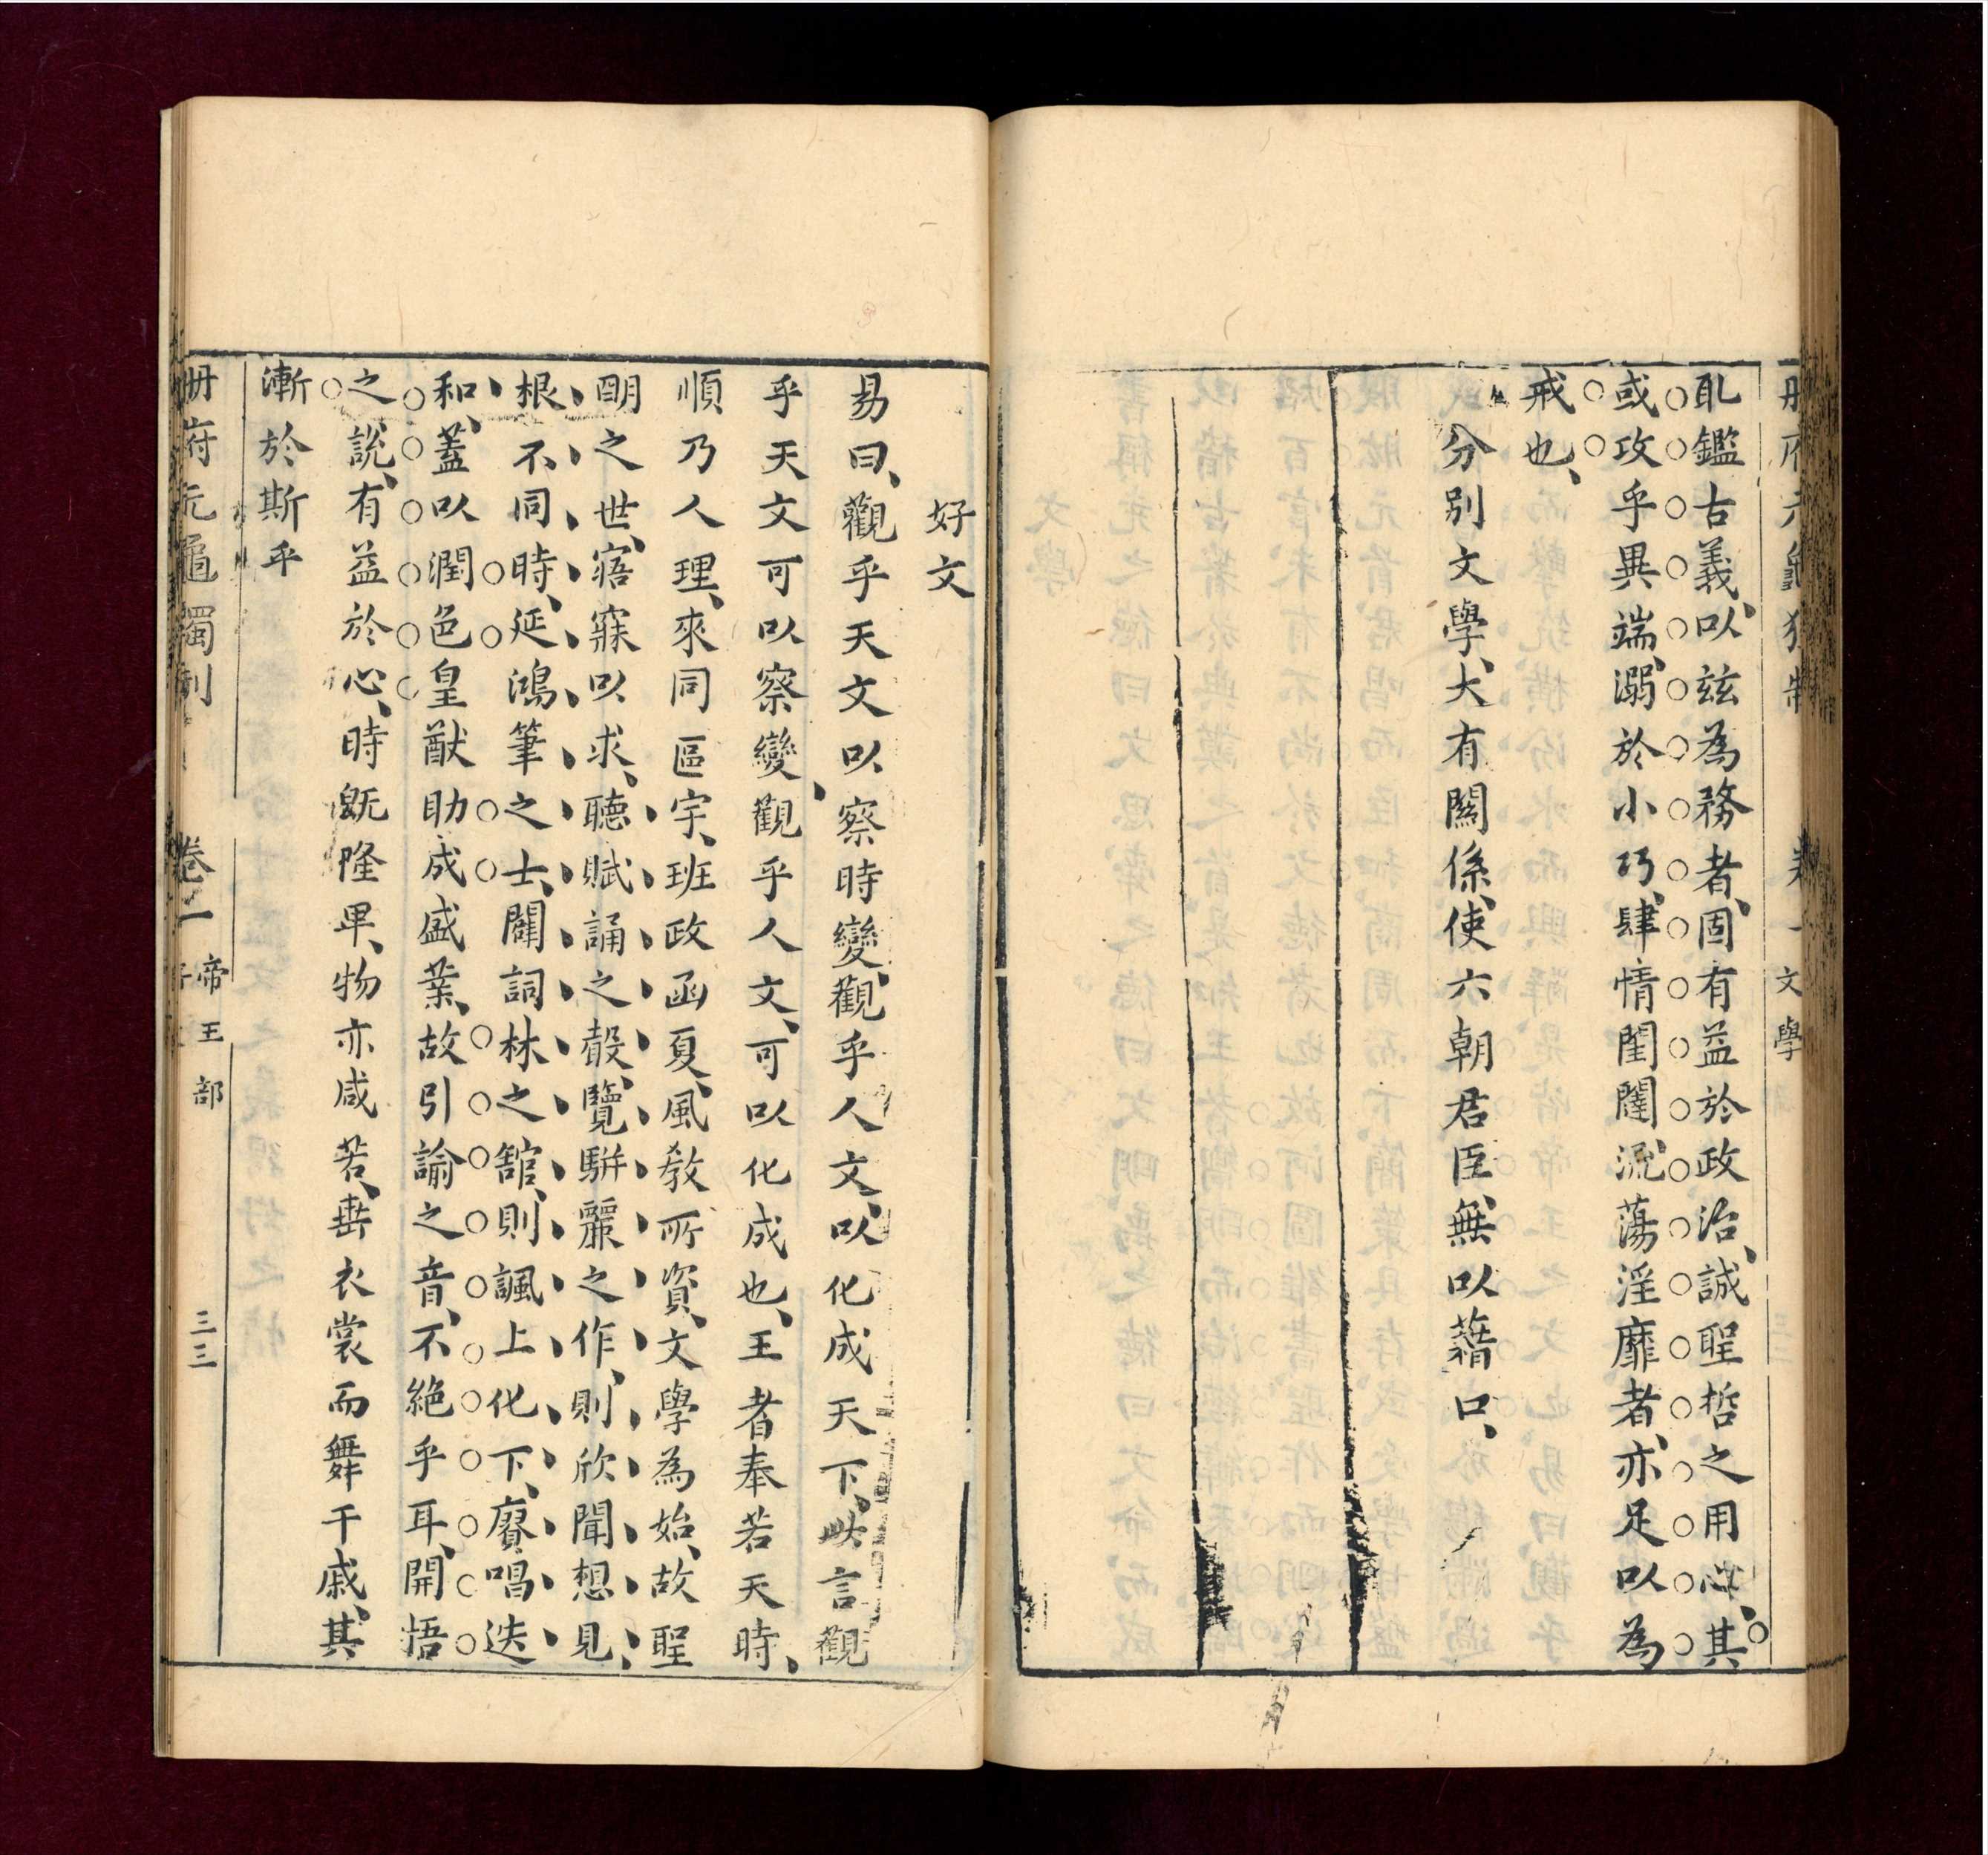 卷一 文學
耴鑑古義、以玆為務者、固有益於政治、誠聖哲之用心、其
或攻乎異端、溺於小巧、肆情閨闥、流蕩淫靡者、亦足以為
戒也、
分別文學、大有關係、使六朝君臣、無以藉口、
好文
易曰、觀乎天文以察時變、觀乎人文、以化成天下、此言觀
乎天文可以察變、觀乎人文、可以化成也、王者奉若天時、
順乃人理、來同區宇、班政函夏、風教所資、文學為始、故聖
朙之世、寤寐以求、聽賦誦之聲、覽駢麗之作、則欣聞想見、
根不同時、延鴻筆之士、闢詞林之舘、則諷上化下、賡唱迭
和、蓋以潤色皇猷助成盛業、故引諭之音、不絶乎耳、開悟
之說、有益於心、時旣隆平、物亦咸若、垂衣裳而舞干戚、其
漸於斯乎
册府元龜獨制 卷一 帝王部 三三